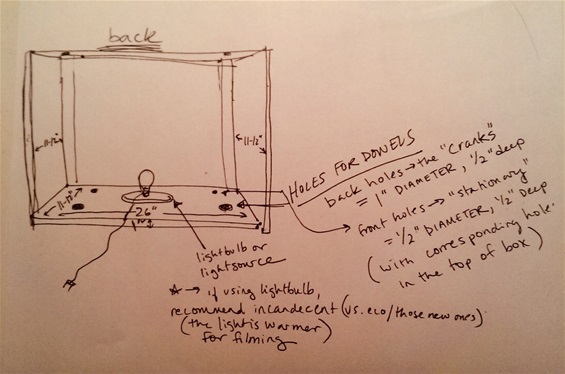 back
11-12"
11-12"
11-12"
26"
HOLES FOR DOWELS
back holes → the "cranks"
= 1" DIAMETER, 1/2" deep
front holes → "stationary"
= 1/2" DIAMETER, 1/2" Deep
(with corresponding hole
in the top of box)
lightbulb or
lightsource
☆ → if using lightbulb,
recommend incandecent (vs. eco/those new ones).
(the light is warmer)
for filming